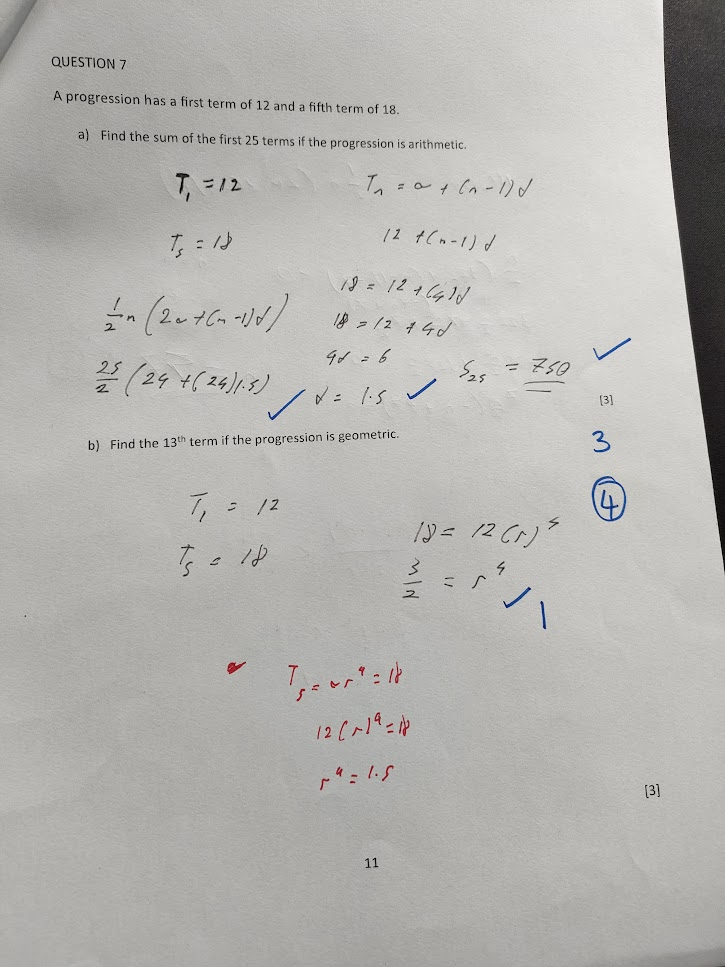 QUESTION 7
A progression has a first term of 12 and a fifth term of 18.
a) Find the sum of the first 25 terms if the progression is arithmetic.
T₁ = 12
Tₙ = a + (n-1)d
T₅ = 18
12 + (n-1)d
18 = 12 + (4)d
½n (2a + (n-1)d)
18 = 12 + 4d
4d = 6
25/2 (24 + (24)1.5) ✓
d = 1.5 ✓
S₂₅ = 750 ✓
[3]
3
b) Find the 13th term if the progression is geometric.
4
T₁ = 12
18 = 12(r)⁴
T₅ = 18
3/2 = r⁴ ✓ 1
T₅ = ar⁴ = 18
12(r)⁴ = 18
r⁴ = 1.5
[3]
11